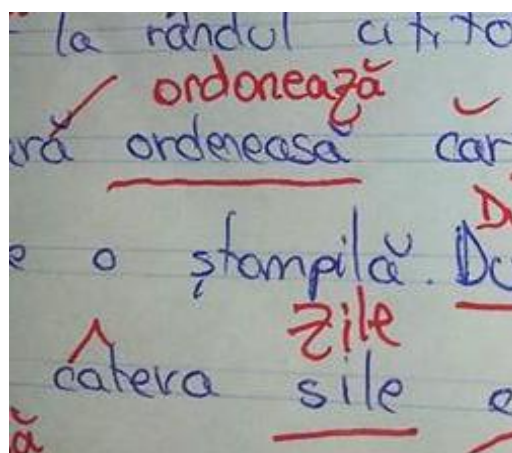 la rândul citito
ordonează
ră ordeneasă căr
e o ștampilă. Du
zile
câteva sile e
ă